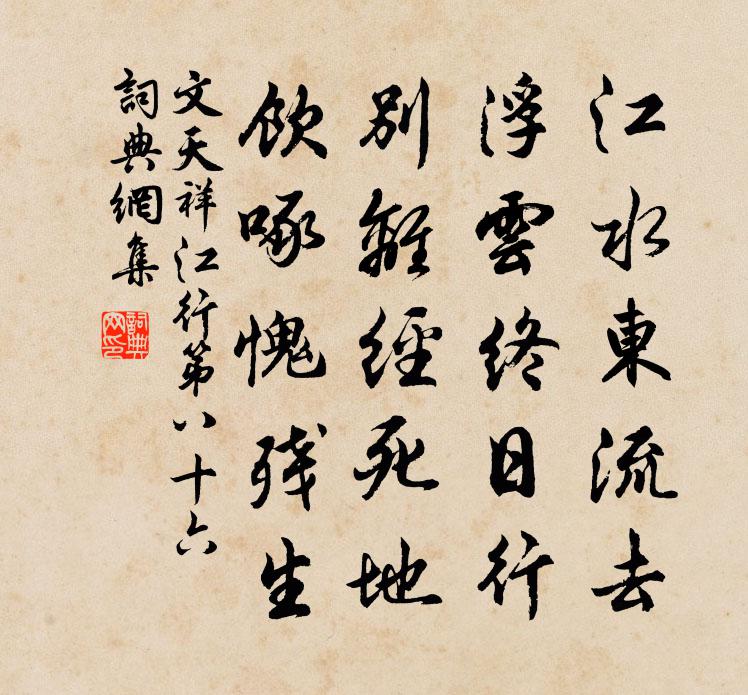 江水東流去
浮雲終日行
別離經死地
飲啄愧殘生
文天祥 江行第八十六
詞典網集
詞典網印